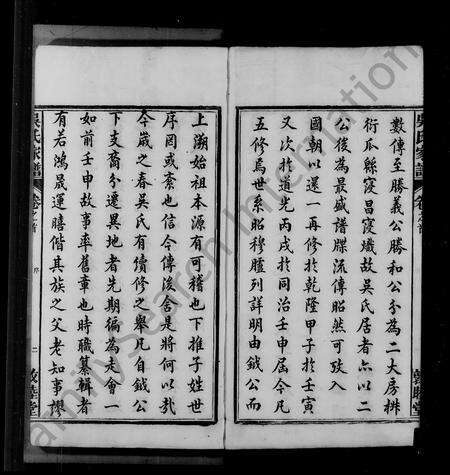 數傳至勝義公勝和公分為二大房排
衍瓜緜寖昌寖熾故吳氏居者亦以二
公後為最盛譜牒流傳昭然可攷入
國朝以還一再修於乾隆甲子於壬寅
又次於道光丙戌於同治壬申屆今凡
五修焉世系昭穆臚列詳明由鉞公而
上溯始祖本源有可稽也下推子姓世
序罔或紊也信今傳後於是將何以哉
今歲之春吳氏有續修之舉凡自鉞公
下支裔分遷異地者先期徧為是會一
如前壬申故事率舊章也時職纂輯者
有若鴻晟運膳偕其族之父老知事摩
吳氏家譜
卷之首
序
二
敦睦堂
吳氏家譜
卷之首
敦睦堂
FamilySearch International